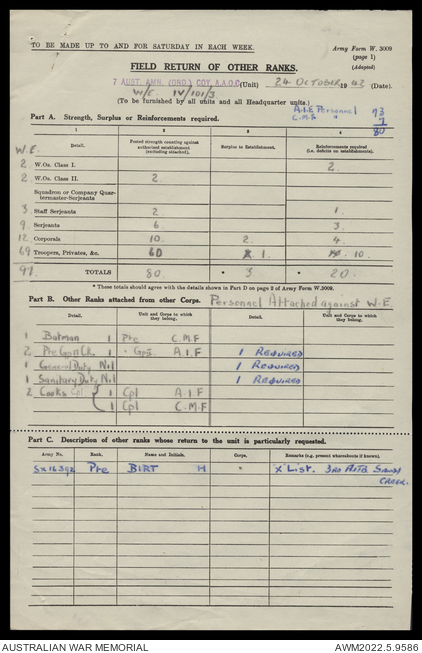 TO BE MADE UP TO AND FOR SATURDAY IN EACH WEEK.
Army Form W. 3009
(page 1)
(Adapted)
FIELD RETURN OF OTHER RANKS.
7 AUST. AMN. (ORD.) COY. A.A.O.C. (Unit) 24 OCTOBER 1943 (Date).
W/E IV/101/3
(To be furnished by all units and all Headquarter units.)
A.I.F Personnel 73
C.M.F " 7
80
Part A. Strength, Surplus or Reinforcements required.
1 2 3 4
W.E. Detail. Posted strength counting against authorized establishment (excluding attached). Surplus to Establishment. Reinforcements required (i.e. deficits on establishments).
2 W.Os. Class I. 2.
2 W.Os. Class II. 2.
Squadron or Company Quartermaster-Serjeants
3 Staff Serjeants 2. 1.
9 Serjeants 6. 3.
12 Corporals 10. 2. 4.
69 Troopers, Privates, &c. 60 1. 10.
97. TOTALS 80. * 3. * 20.
* These totals should agree with the details shown in Part D on page 2 of Army Form W.3009.
Part B. Other Ranks attached from other Corps. Personnel Attached against W.E.
Detail. Unit and Corps to which they belong. Detail. Unit and Corps to which they belong.
1 Batman 1 Pte C.M.F
2 Pte Gp II Clk. 1 " Gp II. A.I.F 1 REQUIRED
1 General Duty Nil 1 REQUIRED
1 Sanitary Duty Nil 1 REQUIRED
2 Cooks Cpl. 1 Cpl A.I.F
1 Cpl C.M.F
Part C. Description of other ranks whose return to the unit is particularly requested.
Army No. Rank. Name and Initials. Corps. Remarks (e.g. present whereabouts if known).
SX16392 Pte BIRT H " X List. 3RD AUST
CREEK.
AUSTRALIAN WAR MEMORIAL
AWM2022.5.9586